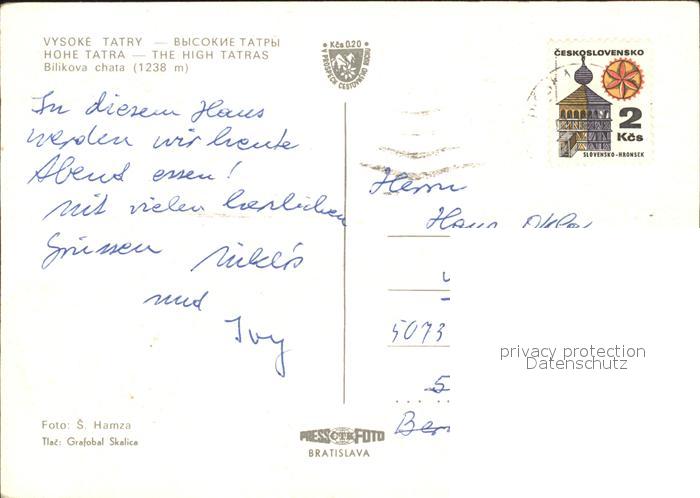 VYSOKÉ TATRY — ВЫСОКИЕ ТАТРЫ
HOHE TATRA — THE HIGH TATRAS
Bilíkova chata (1238 m)
Kčs 0.20
V PROSPECH CESTOVNÉHO RUCHU
ČESKOSLOVENSKO
2
Kčs
SLOVENSKO-HRONSEK
In diesem Haus
werden wir heute
Abend essen!
Mit vielen herzlichen
Grüssen Miklós
und
Ivy
Herrn
Hans
5073
5
Ber
privacy protection
Datenschutz
Foto: Š. Hamza
Tlač: Grafobal Skalica
PRESSČTKFOTO
BRATISLAVA